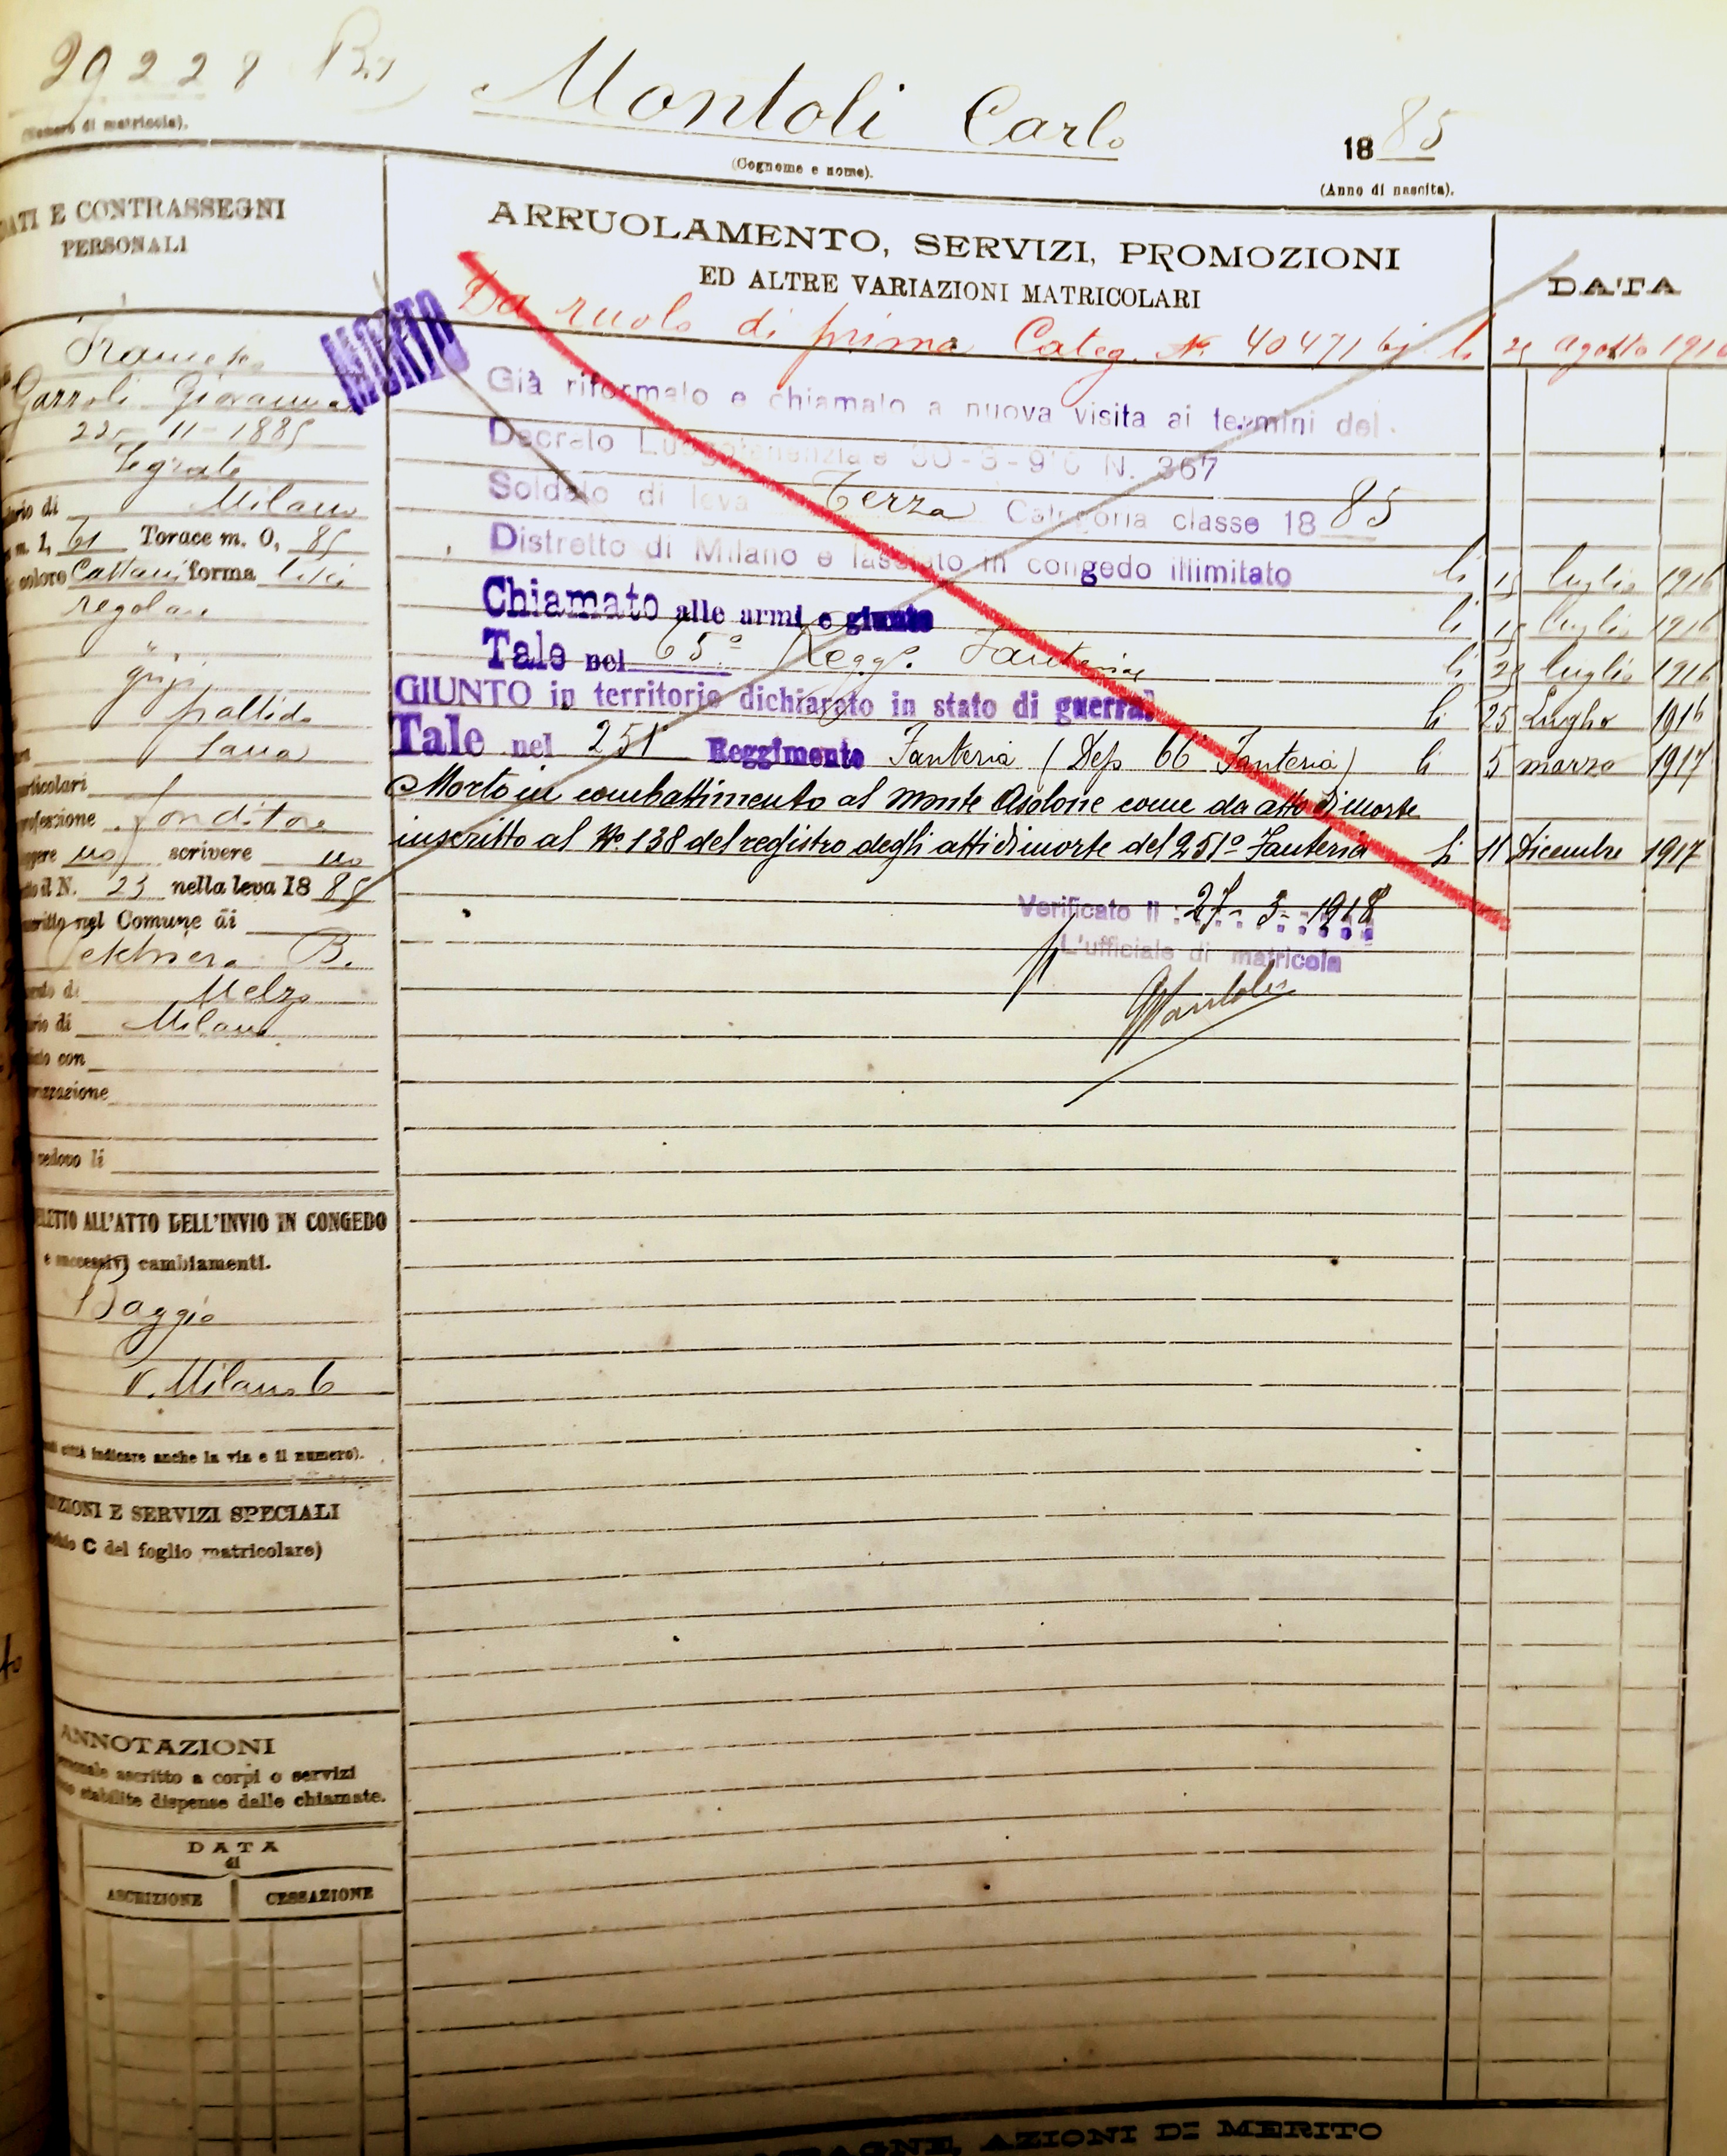 29228 Bis
(Numero di matricola).
Montoli Carlo
(Cognome e nome).
1885
(Anno di nascita).
DATI E CONTRASSEGNI
PERSONALI
Francesco
Garzoli Giovanna
22 - 11 - 1885
Segrate
ario di Milano
m. 1, 61 Torace m. 0, 85
colore Castani forma lisci
regolare
"
grigi
pallido
sana
articolari
ofessione fonditore
ggere no scrivere no
to il N. 23 nella leva 1885
scritto nel Comune di
B.
ento di Melzo
ario di Milano
iato con
rizzazione
vedovo li
ELETTO ALL'ATTO DELL'INVIO IN CONGEDO
e successivi cambiamenti.
Baggio
V. Milano 6
città indicare anche la via e il numero).
ZIONI E SERVIZI SPECIALI
C del foglio matricolare)
ANNOTAZIONI
personale ascritto a corpi o servizi
stabilite dispense dalle chiamate.
DATA
di
ASCRIZIONE CESSAZIONE
ARRUOLAMENTO, SERVIZI, PROMOZIONI
ED ALTRE VARIAZIONI MATRICOLARI
DATA
MORTO
Da ruolo di prima Categ. N. 40471 bis li agosto 1916
Già riformato e chiamato a nuova visita ai termini del
Decreto Luogotenenziale N. 367
Soldato di leva Terza Categoria classe 1885
Distretto di Milano e lasciato in congedo illimitato li 15 luglio 1916
Chiamato alle armi e giunto li 15 luglio 1916
Tale nel 65º Regg. Fanteria li 23 luglio 1916
GIUNTO in territorio dichiarato in stato di guerra. li 25 Luglio 1916
Tale nel 251 Reggimento Fanteria (Dep. 66 Fanteria) li 5 marzo 1917
Morto in combattimento al monte Asolone come da atto di morte
inscritto al Nº 138 del registro degli atti di morte del 251º Fanteria li 11 Dicembre 1917
Verificato il 27 - 3 - 1918
L'ufficiale di matricola
CAMPAGNE, AZIONI DI MERITO